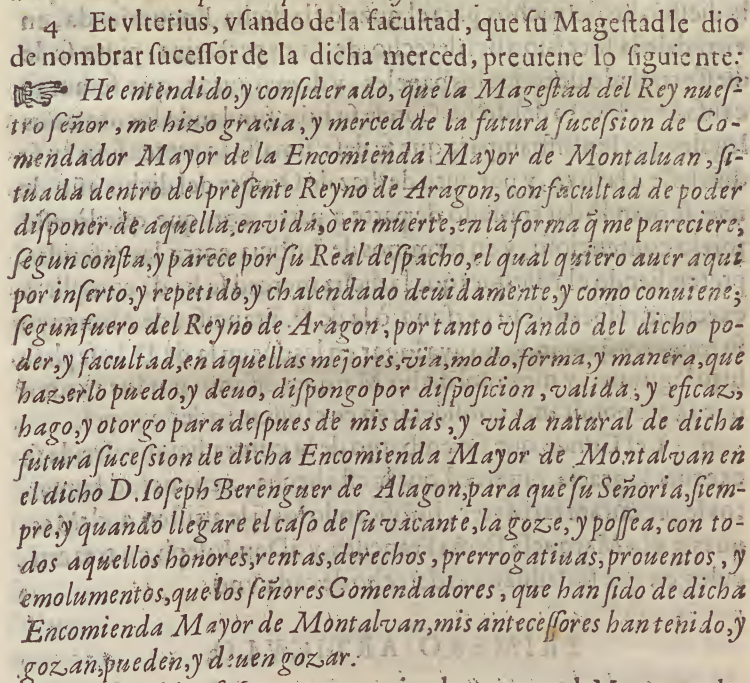 4 Et vlterius, vſando de la facultad, que ſu Mageſtad le dio
de nombrar ſuceſſor de la dicha merced, preuiene lo ſiguiente:
☞ He entendido, y conſiderado, que la Mageſtad del Rey nueſ-
tro ſeñor, me hizo gracia, y merced de la futura ſuceſsion de Co-
mendador Mayor de la Encomienda Mayor de Montaluan, ſi-
tuada dentro del preſente Reyno de Aragon, con facultad de poder
diſponer de aquella, en vida, ò en muerte, en la forma q̃ me pareciere,
ſegun conſta, y parece por ſu Real deſpacho, el qual quiero auer aqui
por inſerto, y repetido, y chalendado deuidamente, y como conuiene,
ſegun fuero del Reyno de Aragon, por tanto vſando del dicho po-
der, y facultad, en aquellas mejores, via, modo, forma, y manera, que
hazerlo puedo, y deuo, diſpongo por diſpoſicion, valida, y eficaz,
hago, y otorgo para deſpues de mis dias, y vida natural de dicha
futura ſuceſsion de dicha Encomienda Mayor de Montalvan en
el dicho D. Ioſeph Berenguer de Alagon, para que ſu Señoria, ſiem-
pre, y quando llegare el caſo de ſu vacante, la goze, y poſſea, con to-
dos aquellos honores, rentas, derechos, prerrogatiuas, prouentos, y
emolumentos, que los ſeñores Comendadores, que han ſido de dicha
Encomienda Mayor de Montalvan, mis anteceſſores han tenido, y
gozan, pueden, y deuen gozar.